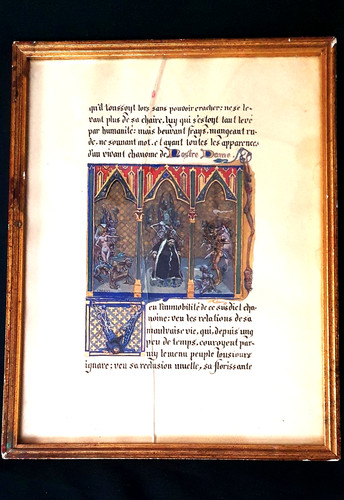 qu'il toussoyt lors sans pouvoir cracher: ne se le-
vant plus de sa chaire, luy qui s'estoyt tant levé
par humanité: mais beuvant frays, mangeant ru-
de, ne sounant mot, et ayant toutes les apparences
d'un vivant chanoine de Nostre Dame.
eu l'immobilité de ce susdict cha-
noine: veu les relations de sa
maulvaise vie, qui, depuis ung
peu de temps, couroyent par-
my le menu peuple tousiours
ignare: veu sa reclusion muette, sa florissante